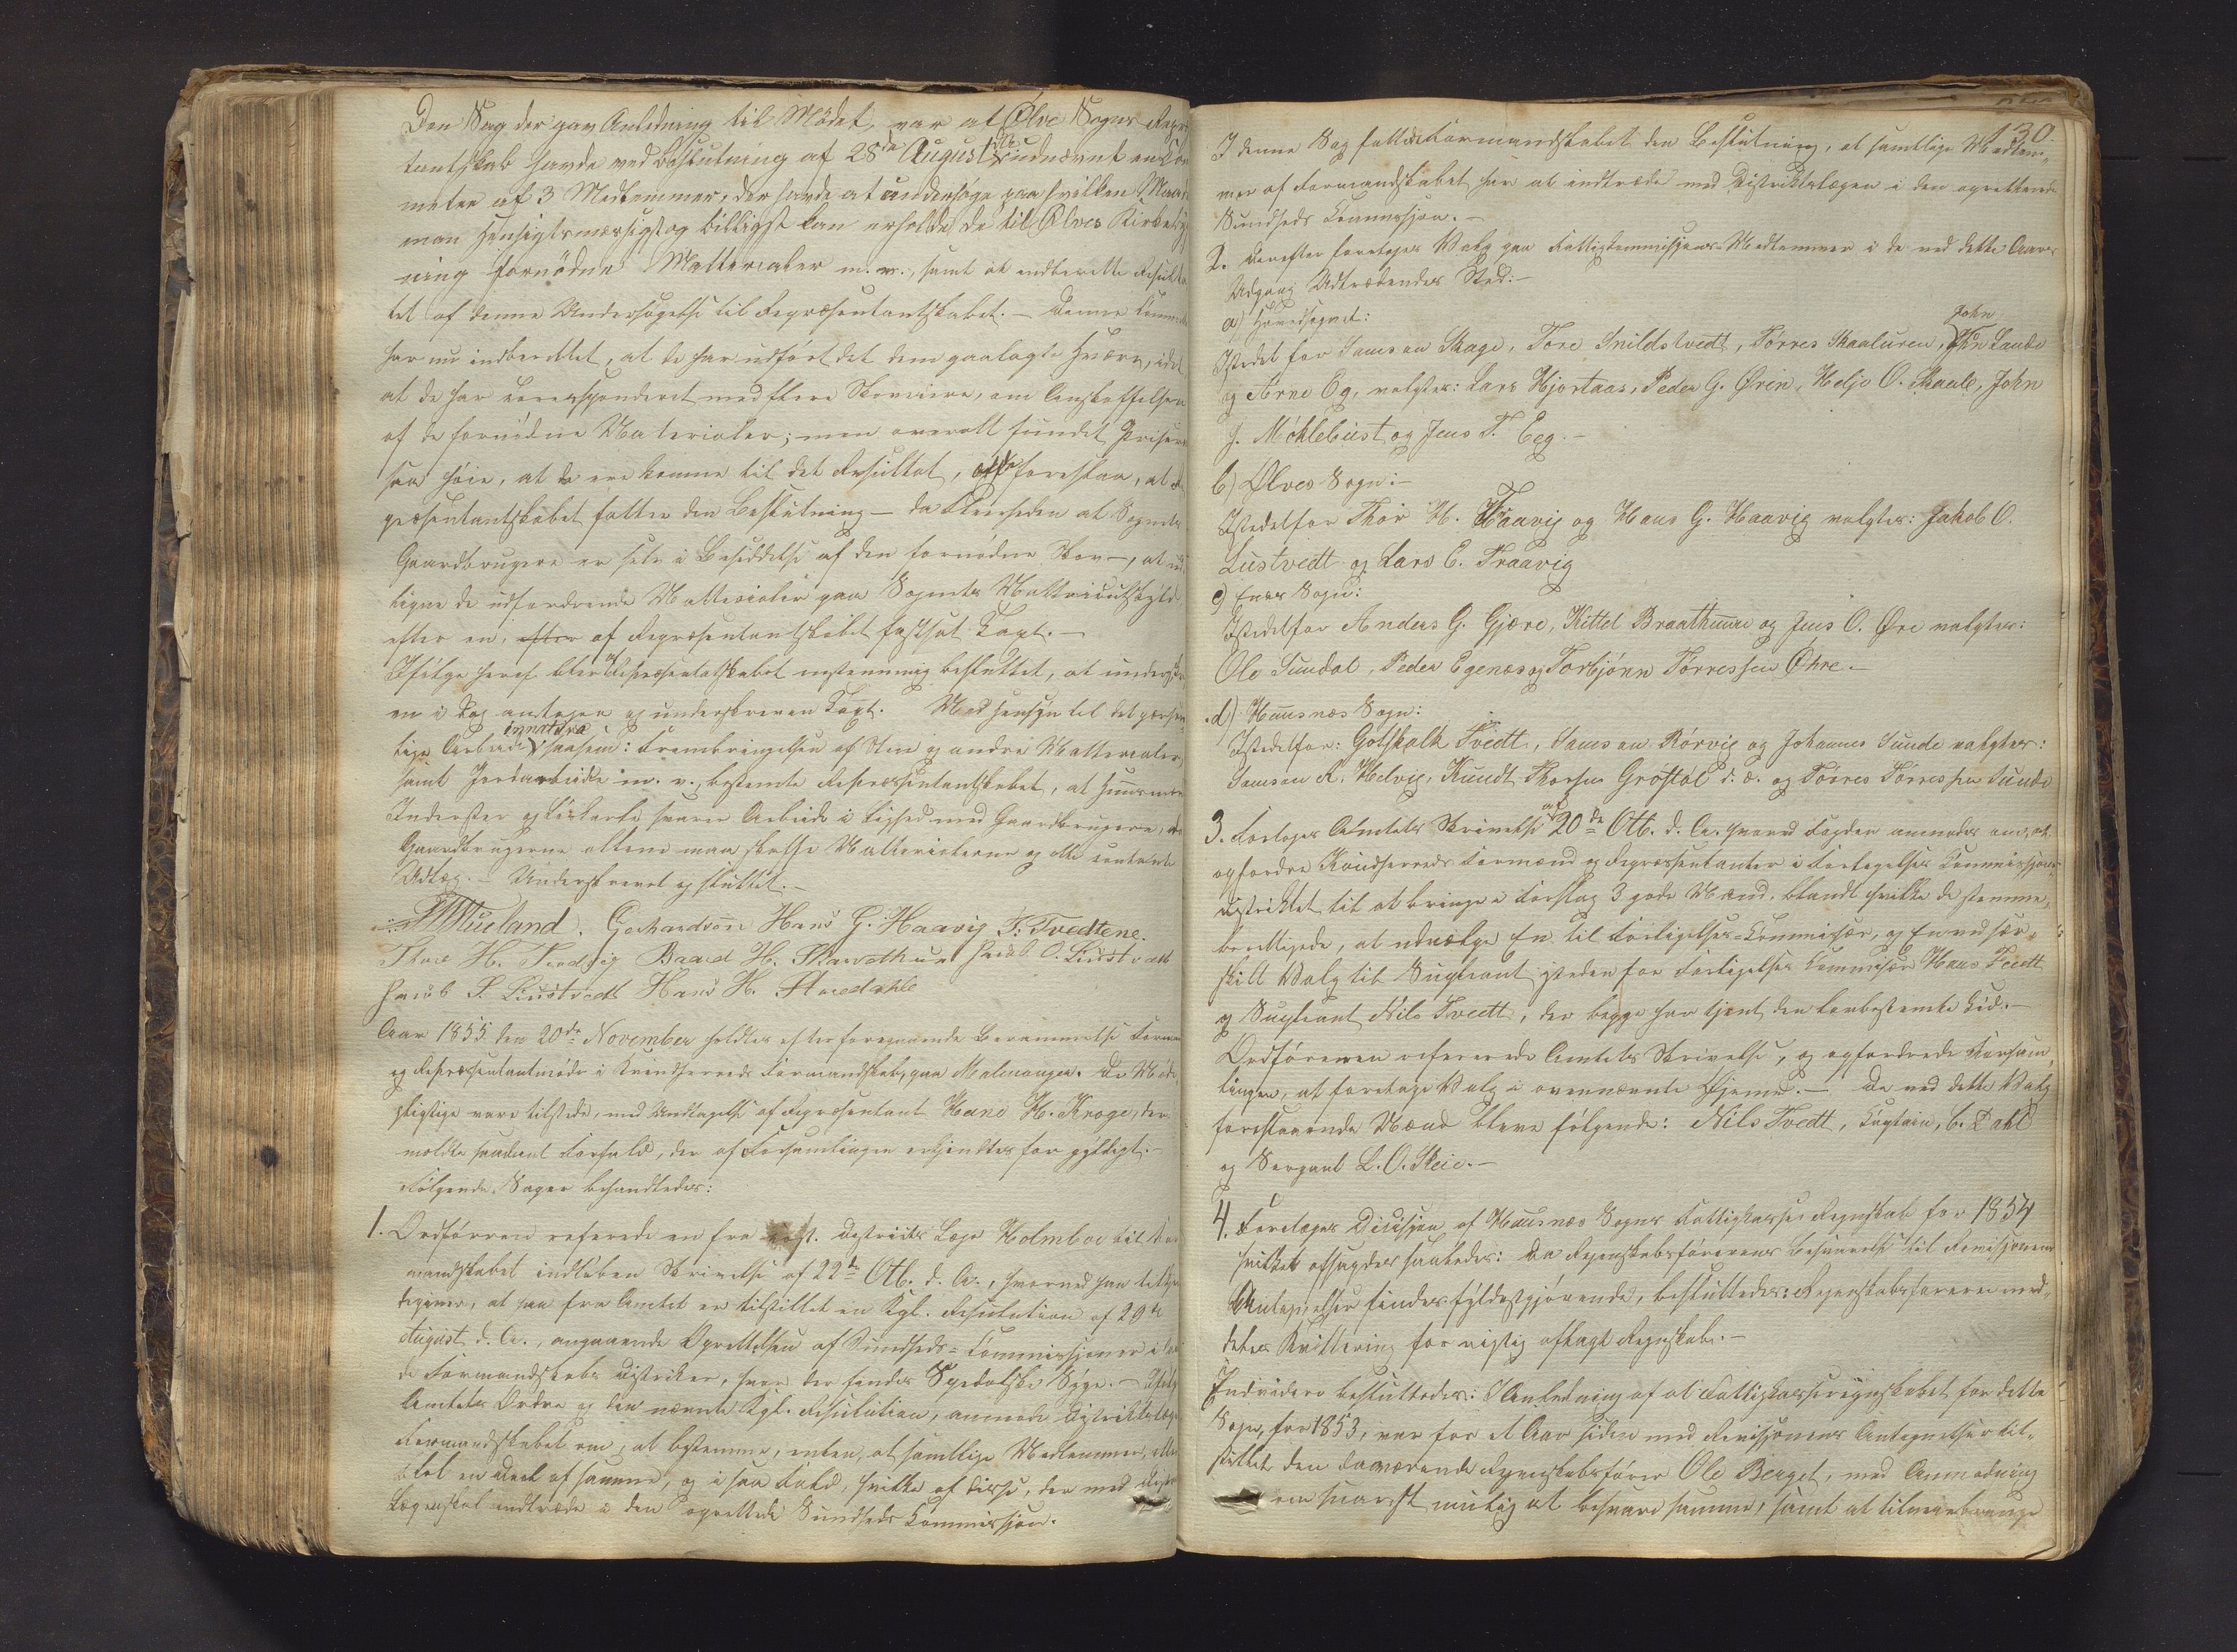 Den Sag der gav Anledning til Mödet, var at Ølve Sogns Repræ
tantskab havde ved Beslutning af 28de August d. A. udnævnt en Com
mitee af 3 Medlemmer, der havde at undersöge paa hvilken Maade
man hensigtsmæssigst og billigst kan erholde de til Ølves Kirkebyg
ning fornödne Matterialer m. v., samt at indberette Resulta
tet af denne Undersögelse til Repræsentantskabet. – Denne Commitee
har nu indberettet, at de har udfört det dem paalagte Hværv, idet
at de har correspponderet med flere Skoveiere, om Anskaffelsen
af de fornödne Materialer; men overalt fundet Priserne
saa höie, at de ere komne til det Resultat, at foreslaa, at Re
præsentantskabet fatter den Beslutning – da Fleerheden af Sognets
Gaardbrugere er selv i Besiddelse af den fornödne Skov –, at ud
ligne de udfordrende Matterialer paa Sognets Mattriculskyld,
efter en, efter af Repræsentantskabet fastsat Taxt. –
Ifölge heraf blev af Repræsentatskabet enstemmig besluttet, at
en i Dag antagen og underskreven Taxt. Med Hensyn til det pærson
lige Arbeide saasom: Frembringelsen af Steen og andre Matterialer
samt Jordarbeide m. v., bestemte Repræsentantskabet, at Huusmænd
Inderster og Löskarle svarer Arbeide i Lighed med Gaardbrugere,
Gaardbrugerne allene maa skaffe Matterialerne og alle contante
Udlæg. – Underskrevet og sluttet. –
Mueland. Gerhardson Hans G. Haavig T. Tvedtene.
Thore H. Baard H. Jacob O. Liustvedt
Jacob S. Liustvedt Hans H.
Aar 1855 den 20de November holdtes efter foregaaende Berammelse Formand
og Repræsentantmöde i Kvindherreds Formandskab, paa Malmanger. De Möde
pligtige vare tilstede, med Undtagelse af Repræsentant Hans H. Kroge, der
meldte Forfald, der af Forsamlingen erkjendtes for gyldigt. –
Fölgende Sager behandledes:
1. Ordföreren refererede en fra const. Districts Læge Holmboe til For
mandskabet indlöben Skrivelse af 22de Otb. d. A., hvorved han tilkjen
degiver, at han fra Amtet er tilstillet en Kgl. Resulution af 29de
August d. A., angaaende Oprettelsen af Sundheds-Commissjoner i
de Formandskabs Distrikter, hvor der findes Spedalske Syge. – Ifölge
Amtets Ordre og den nævnte Kgl. Resulution, anmode Distriktslægen
Formandskabet om, at bestemme, enten, at samtlige Medlemmer, eller
blot en Deel af samme, og i saa Fald, hvilke af disse, der med Distr
Lægen skal indtræde i den oprettede Sundheds Commissjon.
130
I denne Sag fattede Formandskabet den Beslutning, at samtlige Medlem-
mer af Formandskabet har at indtræde med Distriktslægen i den oprettede
Sundheds Commissjon. –
2. Derefter foretoges Valg paa Fattigkommisjons-Medlemmer i de ved dette Aars
Udgang Udtrædendes Sted: –
a) Hovedsognet:
Istedet for Samson Skage, Tore Snildstvedt, Törres Skaaluren, John Sande
og Arne Eg, valgtes: Lars Hjortaas, Peder G. Ørin, Heljo O. Skaale, John
J. Möklebust og Jens T. Eeg. –
b) Ølves Sogn: –
Istedetfor Thor H. Traavig og Hans G. Haavig valgtes: Jakob O.
Lustvedt og Lars E. Traavig
c) Enes Sogn:
Istedetfor Anders G. Gjære, Kittel Braathuun og Jens O. Øre valgtes:
Ole Sundal, Peder Egenæs og Torbjönn Törressen Öhre. –
d) Huusnæs Sogn:
Istedetfor: Gotskalk Tvedt, Samson Rörvig og Johannes Sunde valgtes:
Samson R. Helvig, Knudt Thorsen Gröstöl d. æ. og Törres Törressen Sunde
3. Foretoges Amtets Skrivelse af 20de Otb. d. A. hvorved Fogden anmodes om at
opfordre Kvindherreds Formænd og Repræssentanter i Forligelses Commissjons
distriktet til at bringe i Forslag 3 gode Mænd, blandt hvilke de stemme-
berettigede, at udvælge En til Forligelses-Commissær, og En ved sær-
skilt Valg til Supleant isteden for Forligelses Commisær Hans Tvedt
og Supleant Nils Tvedt, der begge har tjent den lovbestemte Tid. –
Ordföreren refererede Amtets Skrivelse, og opfordrede Forsam
lingen, at foretage Valg i ovennævnte Øjemed. – De ved dette Valg
foreslaaende Mænd bleve fölgende: Nils Tvedt, Captain, C. Dahl
og Sergant L. O. Skeie. –
4. Foretoges Dicisjon af Huusnæs Sogns Fattigkasses Regnskab for 1854
hvilket afsagdes saaledes: Da Regnskabsförerens Besvarelse til Revisjonens
Antegnelser findes fyldestgjörende, besluttedes: Regnskabsföreren med-
deles Kvittering for rigtig aflagt Regnskab. –
Endvidere besluttedes: I Anledning af at Fattigkasseregnskabet for dette
Sogn, for 1853, var for et Aar siden med Revisjonens Antegnelser til-
stillet den daværende Regnskabsförer Ole Berget, med Anmodning
om snarest mulig at besvare samme, samt at tilveiebringe